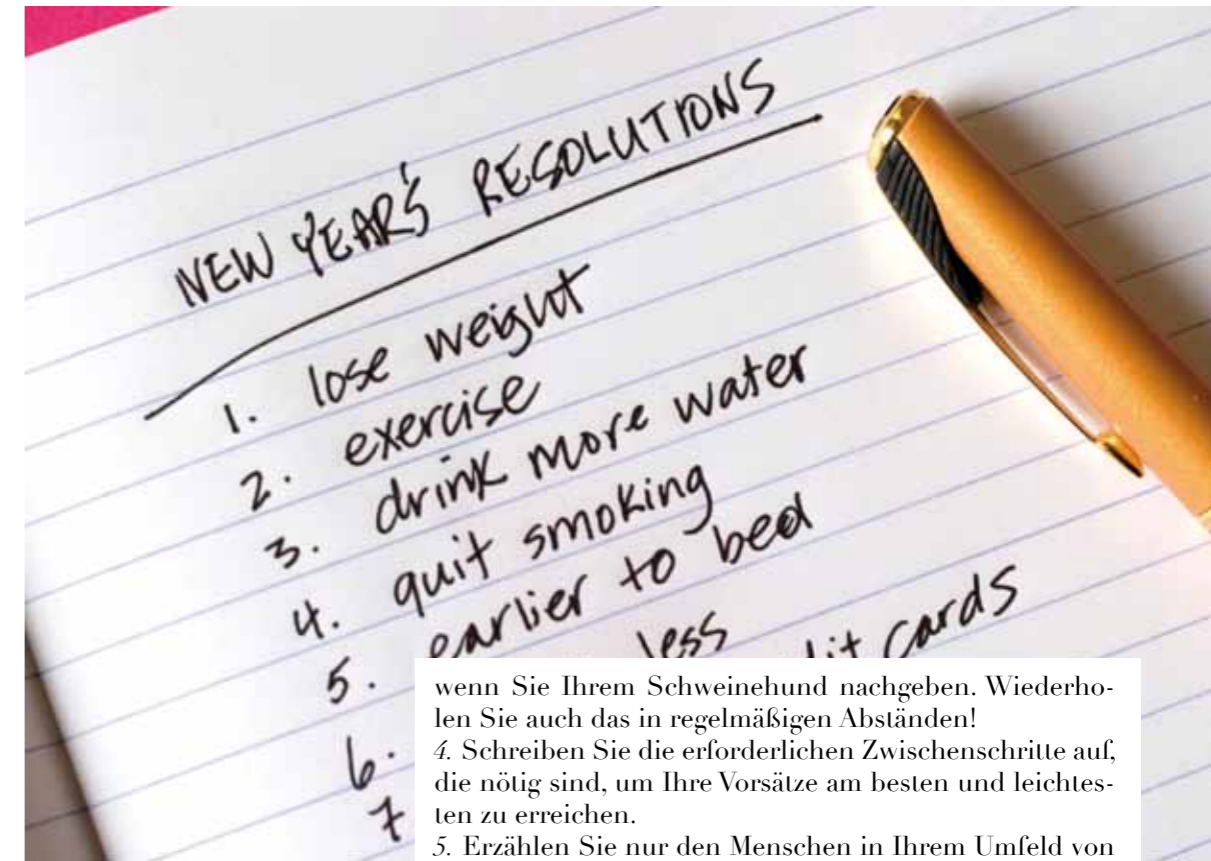 NEW YEAR'S RESOLUTIONS
1. lose weight
2. exercise
3. drink more water
4. quit smoking
5. earlier to bed
6. less
7 cards
wenn Sie Ihrem Schweinehund nachgeben. Wiederho-
len Sie auch das in regelmäßigen Abständen!
4. Schreiben Sie die erforderlichen Zwischenschritte auf,
die nötig sind, um Ihre Vorsätze am besten und leichtes-
ten zu erreichen.
5. Erzählen Sie nur den Menschen in Ihrem Umfeld von